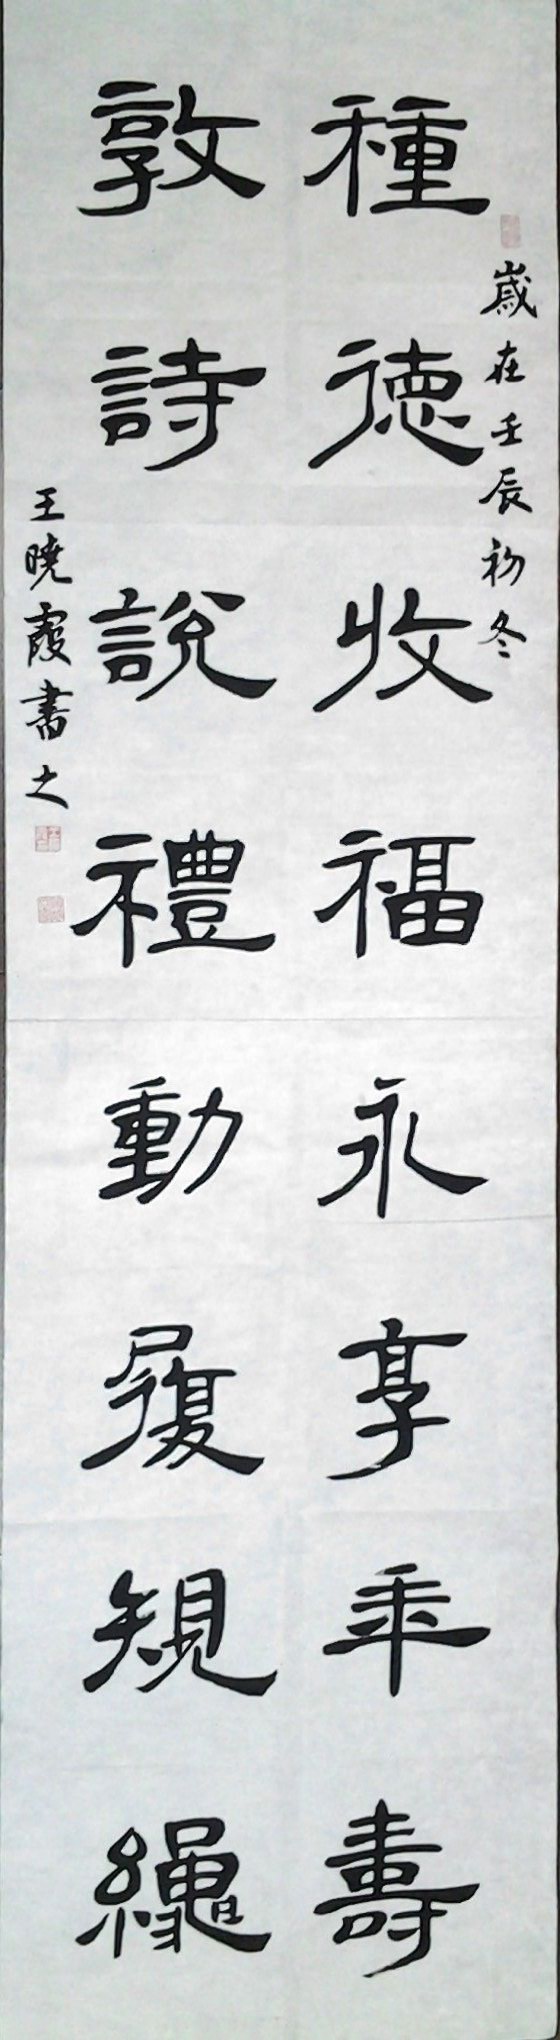 歲在壬辰初冬
種德收福永享年壽
敦詩說禮動履規繩
王曉霞書之